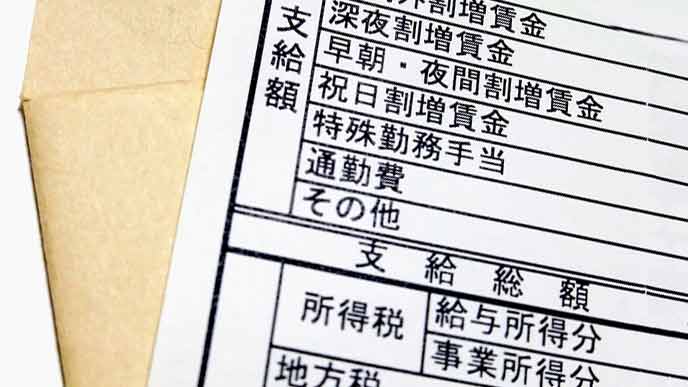 外割増賃金
深夜割増賃金
早朝・夜間割増賃金
祝日割増賃金
特殊勤務手当
通勤費
その他
支給額
支給総額
所得税
給与所得分
事業所得分
地方税